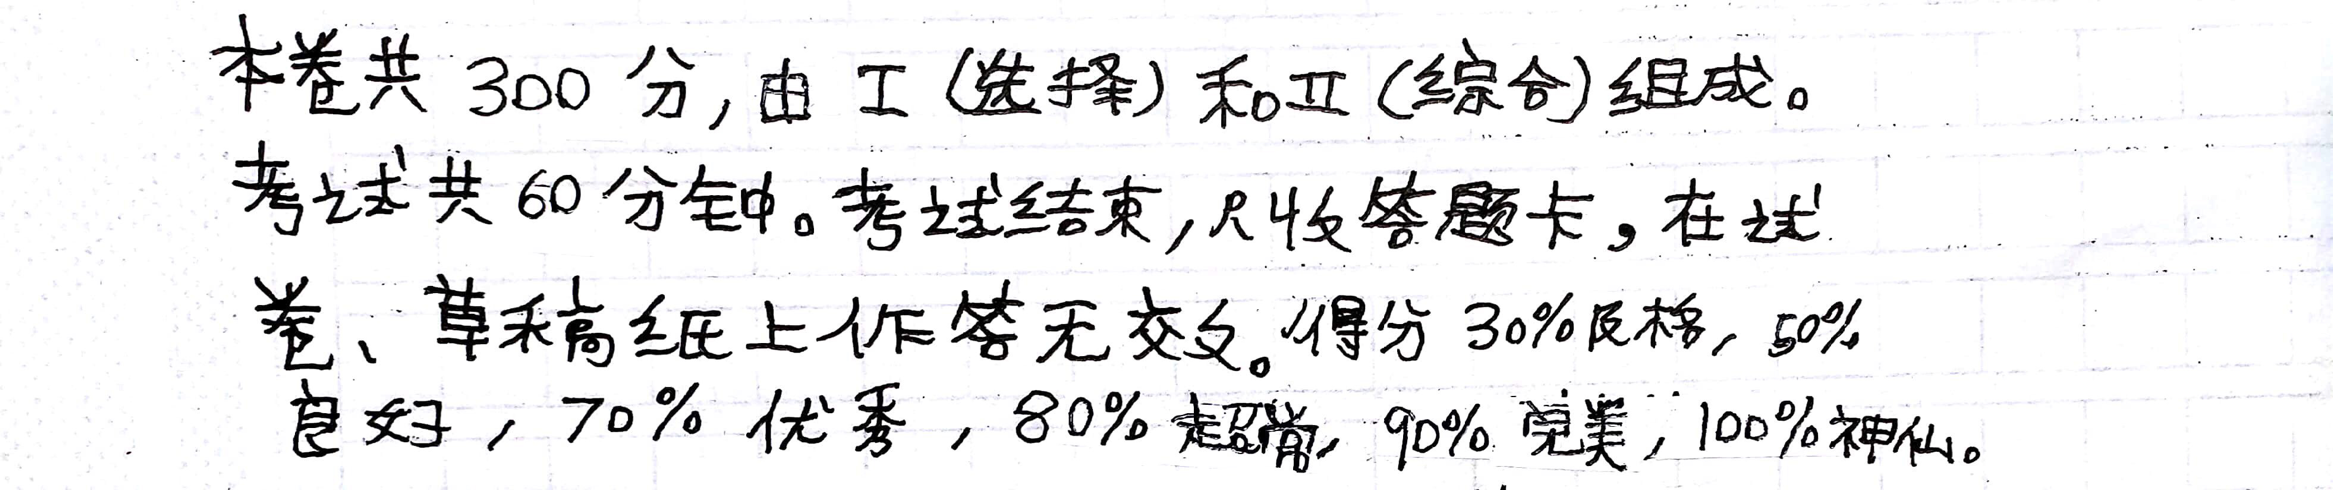 本卷共 300 分,由 I (选择) 和 II (综合) 组成。
考试共 60 分钟。考试结束,只收答题卡,在试
卷、草稿纸上作答无效。得分 30%及格, 50%
良好, 70% 优秀, 80% 超常, 90% 完美, 100%神仙。